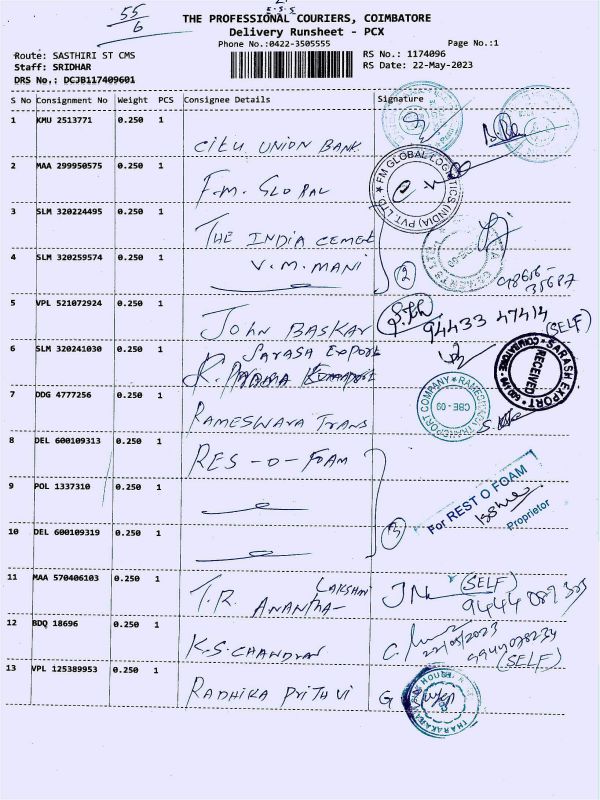 55/6
THE PROFESSIONAL COURIERS, COIMBATORE
Delivery Runsheet - PCX
Phone No.:0422-3505555
Page No.:1
Route: SASTHIRI ST CMS
RS No.: 1174096
Staff: SRIDHAR
RS Date: 22-May-2023
DRS No.: DCJB117409601
S No Consignment No Weight PCS Consignee Details Signature
1 KMU 2513771 0.250 1 City UNION BANK
2 MAA 299950575 0.250 1 F.M. GLOBAL
FM GLOBAL LOGISTICS (INDIA) PVT. LTD.
3 SLM 320224495 0.250 1 THE INDIA CEMET
4 SLM 320259574 0.250 1 V.M.MANI
2
98656-
35687
5 VPL 521072924 0.250 1 JOHN BASKAR
94433 47414
(SELF)
6 SLM 320241030 0.250 1 SARASA EXPORT
SARASK EXPORT
RECEIVED
7 DDG 4777256 0.250 1 RAMESWARA TRANS
CBE - 09
8 DEL 600109313 0.250 1 RES-O-FOAM
9 POL 1337310 0.250 1
3
For REST O FOAM
Proprietor
10 DEL 600109319 0.250 1
11 MAA 570406103 0.250 1 T.R. ANANTHA-
LAKSHMI
(SELF)
12 BDQ 18696 0.250 1 K.S.CHANDRAN
22/05/2023
(SELF)
13 VPL 125389953 0.250 1 RADHIKA PRITHVI
G